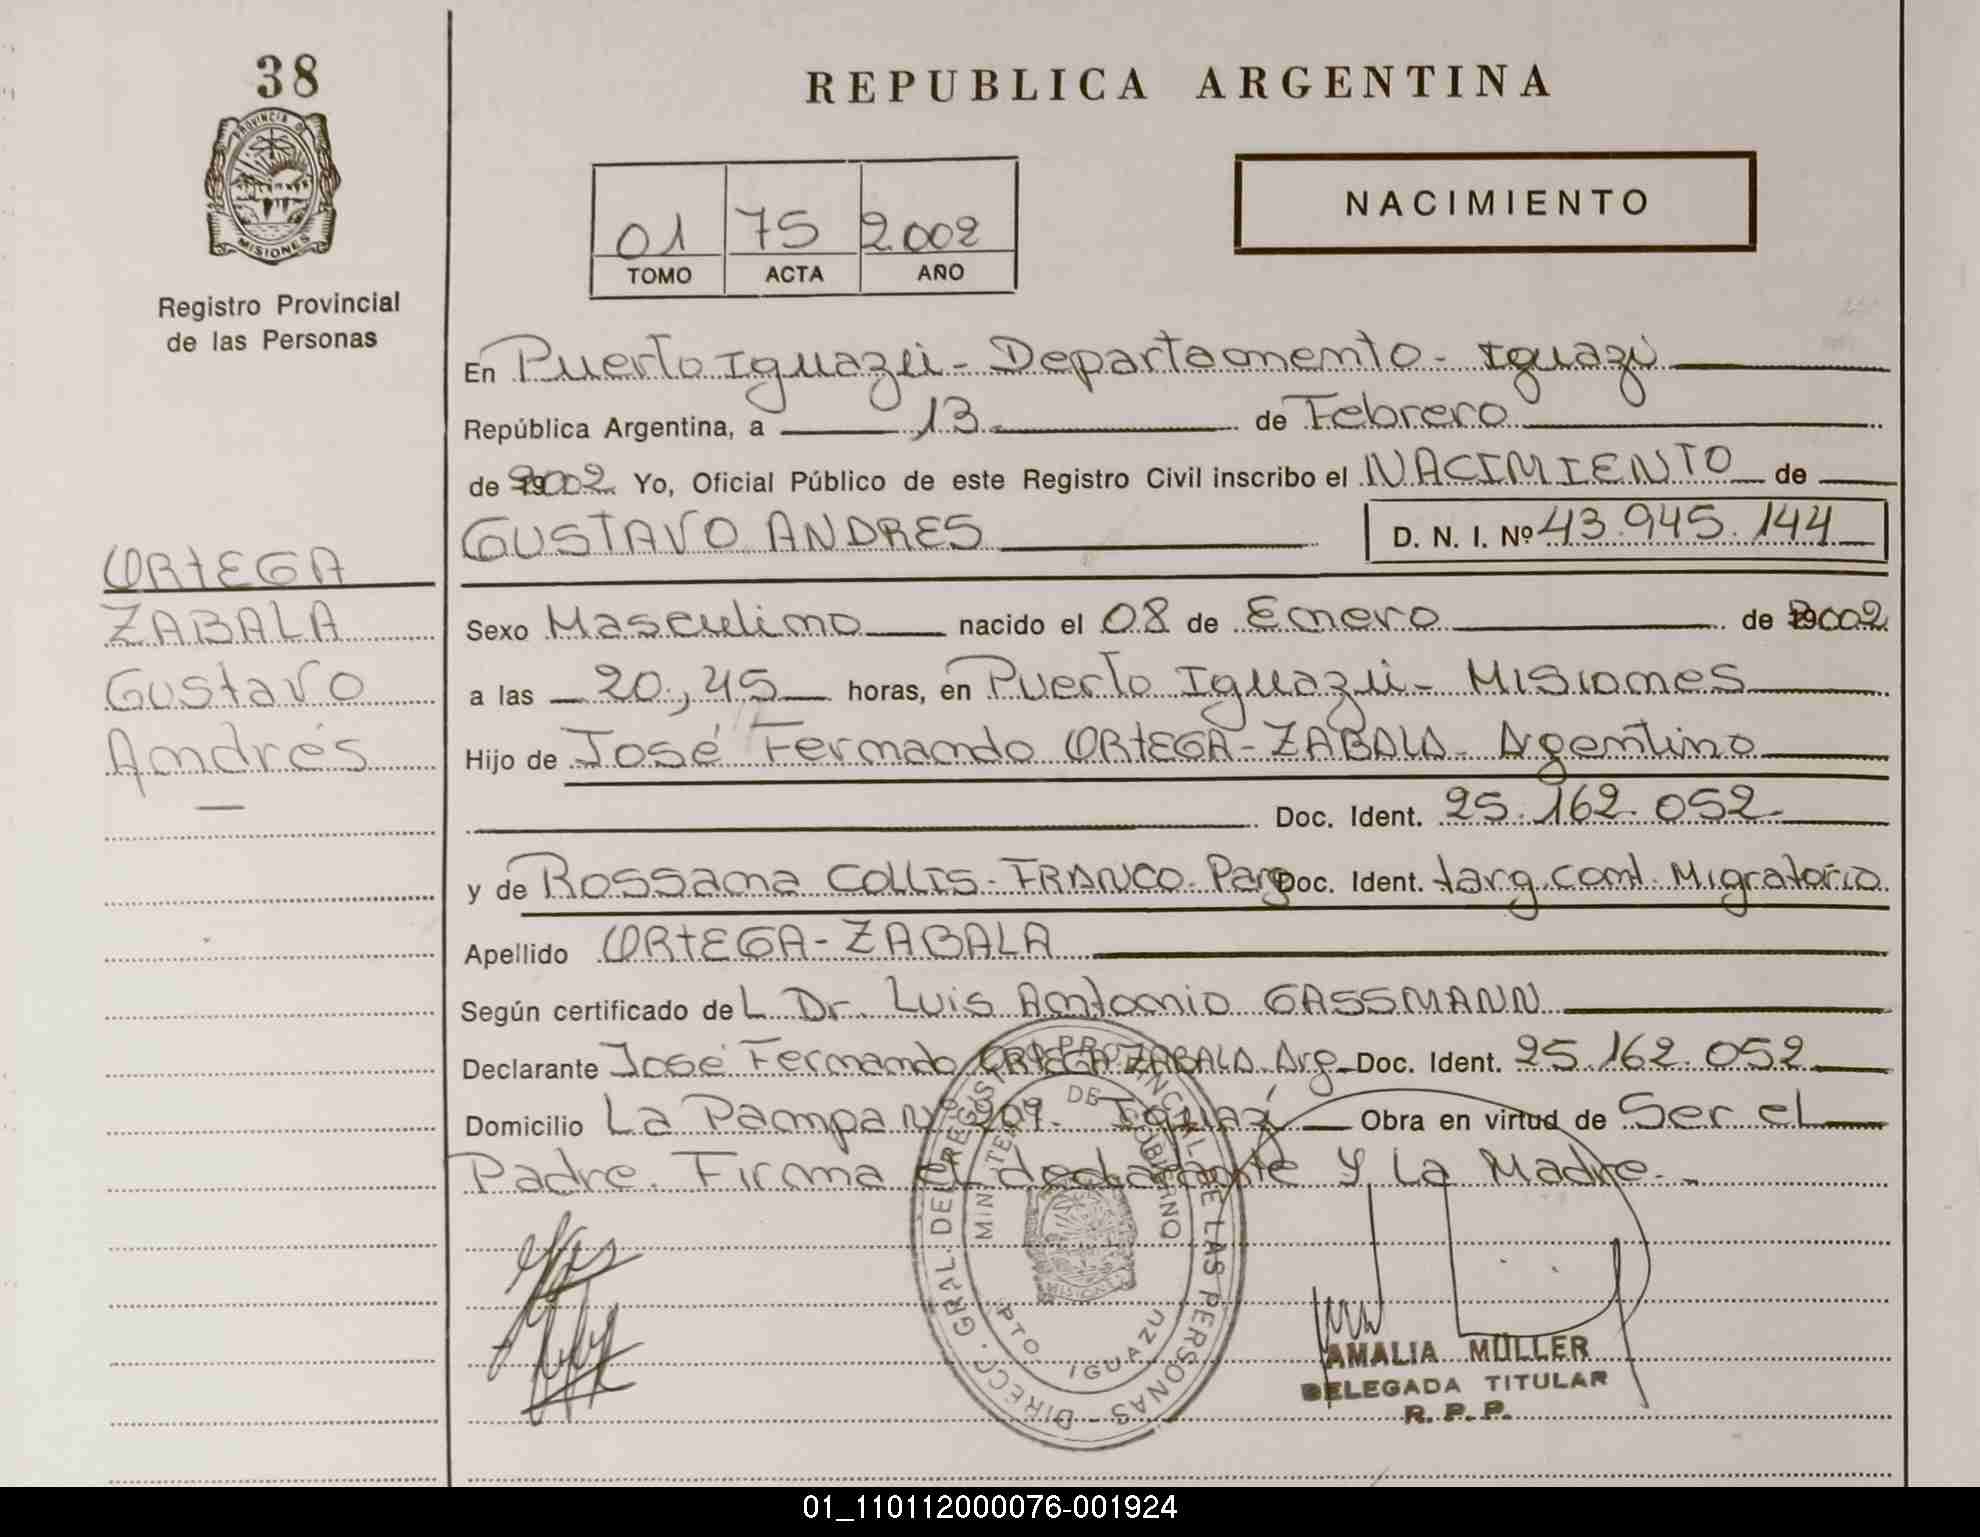 38
PROVINCIA DE
MISIONES
Registro Provincial
de las Personas
ORTEGA
ZABALA
Gustavo
Andrés
REPUBLICA ARGENTINA
01 75 2002
TOMO ACTA AÑO
NACIMIENTO
En Puerto Iguazú - Departamento - Iguazú
República Argentina, a 13 de Febrero
de 2002 Yo, Oficial Público de este Registro Civil inscribo el NACIMIENTO de
GUSTAVO ANDRES D. N. I. Nº 43.945.144
Sexo Masculino nacido el 08 de Enero de 2002
a las 20,45 horas, en Puerto Iguazú - Misiones
Hijo de José Fernando ORTEGA - ZABALA - Argentino
Doc. Ident. 25.162.052
y de Rossana COLLIS - FRANCO - Parg Doc. Ident. targ. cont. Migratorio
Apellido ORTEGA - ZABALA
Según certificado de L Dr. Luis Antonio GASSMANN
Declarante José Fernando ORTEGA ZABALA Arg - Doc. Ident. 25.162.052
Domicilio La Pampa Nº 209 - Iguazú Obra en virtud de Ser el
Padre. Firma el declarante y la Madre.-
DIRECC. GRAL. DEL REGISTRO PROVINCIAL DE LAS PERSONAS
DE GOBIERNO
MISIONES
PTO IGUAZU
AMALIA MÜLLER
DELEGADA TITULAR
R. P. P.
01_110112000076-001924